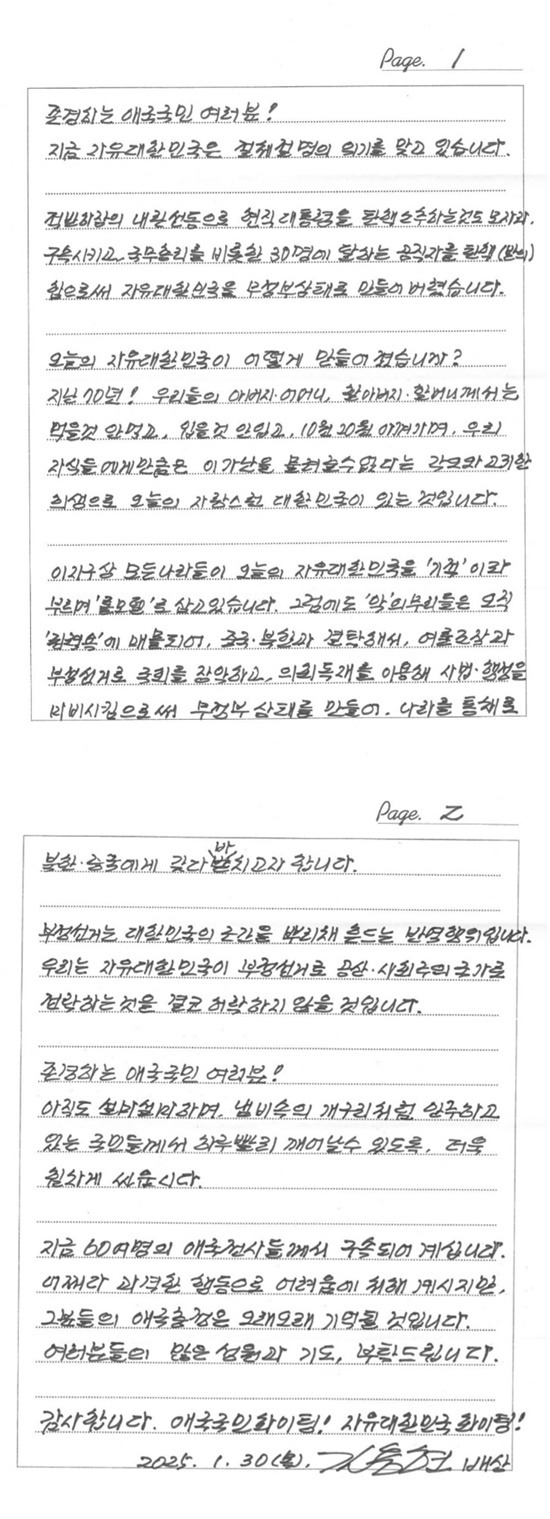 Page. 1
존경하는 애국국민 여러분!
지금 자유대한민국은 절체절명의 위기를 맞고 있습니다.
적반하장의 내란선동으로 현직대통령을 탄핵소추하는것도 모자라,
구속시키고, 국무총리를 비롯한 30명에 달하는 공직자를 탄핵(발의)
함으로써 자유대한민국을 무정부상태로 만들어 버렸습니다.
오늘의 자유대한민국이 어떻게 만들어 졌습니까?
지난 70년! 우리들의 아버지·어머니, 할아버지·할머니께서는
먹을것 안먹고, 입을것 안입고, 10원 20원 아껴가며, 우리
자식들에게만큼은 이가난을 물려줄수없다는 각오와 고귀한
희생으로 오늘의 자랑스런 대한민국이 있는 것입니다.
이지구상 모든나라들이 오늘의 자유대한민국을 '기적'이라
부르며 '롤모델'로 삼고있습니다. 그럼에도 '악'의무리들은 오직
'권력욕'에 매몰되어, 중국·북한과 결탁해서, 여론조작과
부정선거로 국회를 장악하고, 의회독재를 이용해 사법·행정을
마비시킴으로써 무정부상태를 만들어, 나라를 통째로
Page. 2
북한·중국에게 갖다 바치고자 합니다.
부정선거는 대한민국의 근간을 뿌리채 흔드는 반역행위입니다.
우리는 자유대한민국이 부정선거로 공산·사회주의 국가로
전락하는것을 결코 허락하지 않을 것입니다.
존경하는 애국국민 여러분!
아직도 설마설마하며, 냄비속의 개구리처럼 안주하고
있는 국민들께서 하루빨리 깨어날수 있도록, 더욱
힘차게 싸웁시다.
지금 60여명의 애국전사들께서 구속되어 계십니다.
어쩌다 과격한 행동으로 어려움에 처해 계시지만,
그분들의 애국충정은 오래오래 기억될 것입니다.
여러분들의 많은 성원과 기도, 부탁드립니다.
감사합니다. 애국국민화이팅! 자유대한민국 화이팅!
2025. 1. 30(목). 김용현 배상